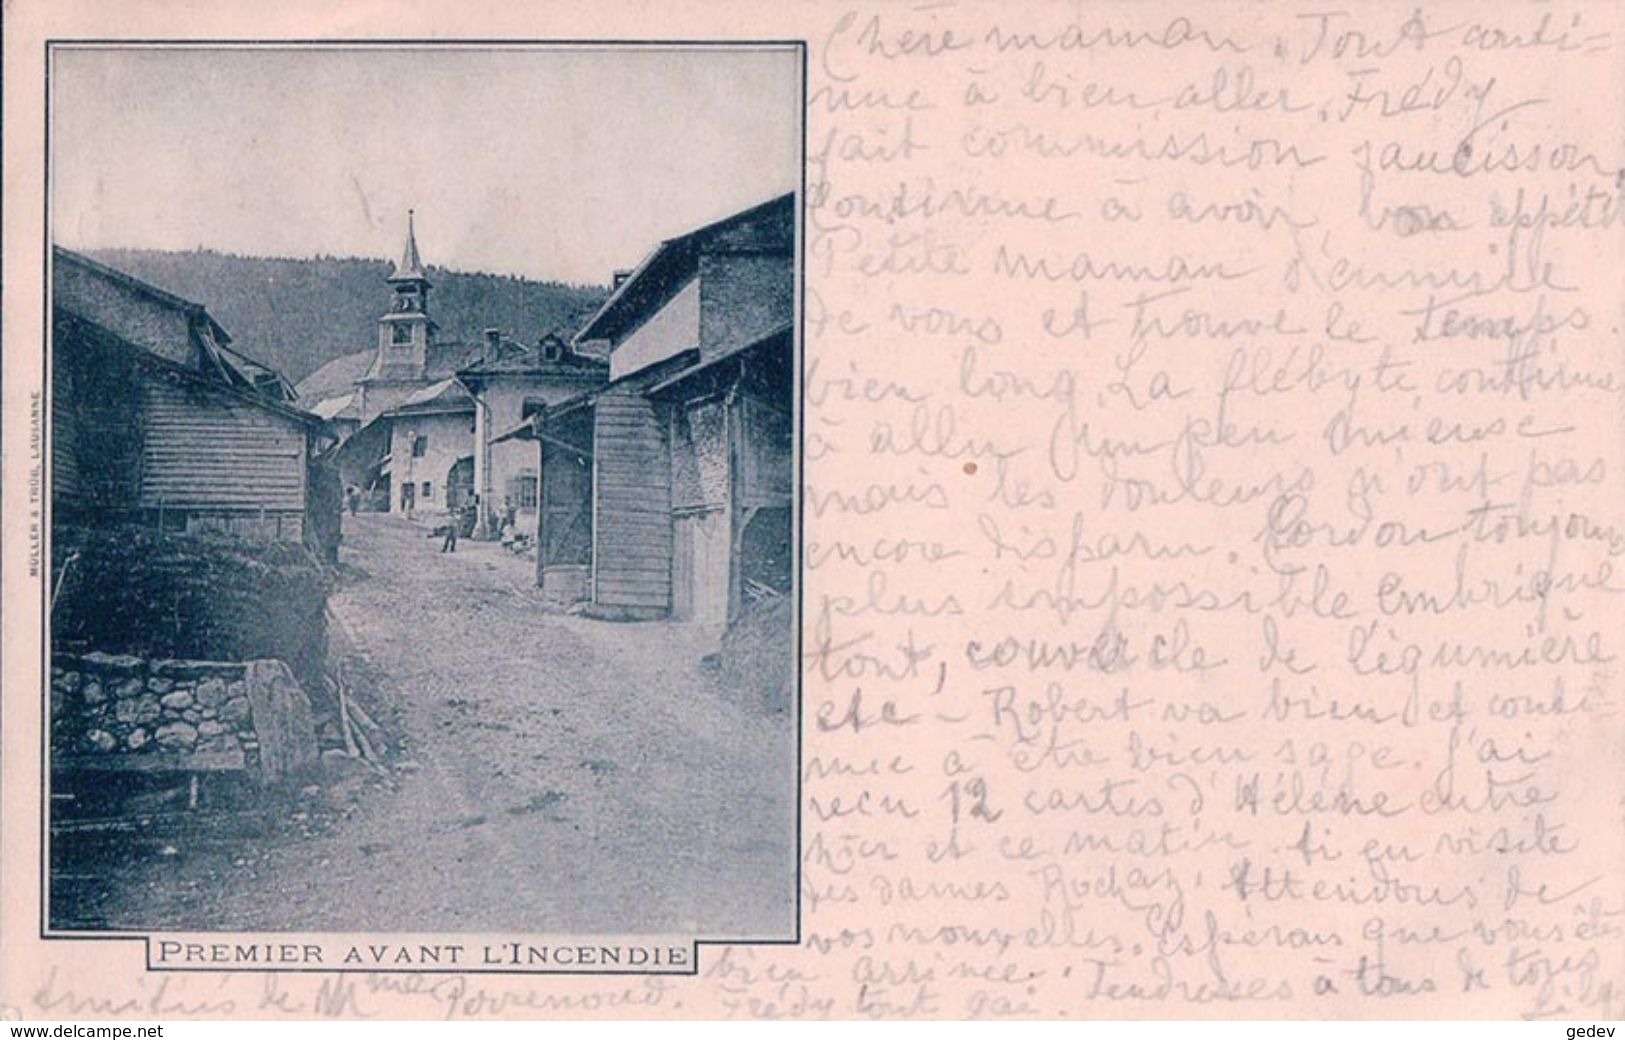 Chère maman. Tout conti=
nue à bien aller. Frédy
fait commission saucisson.
Continue à avoir bon appétit
Petite maman s'ennuie
de vous et trouve le temps
bien long. La flébyte continue
à aller un peu mieux
mais les douleurs n'ont pas
encore disparu. Cordon toujours
plus impossible embrique
tout, couvercle de légumière
etc - Robert va bien et conti-
nue à être bien sage. J'ai
reçu 12 cartes d'Hélène entre
hier et ce matin. Ai eu visite
des dames Rochaz. Attendons de
vos nouvelles. Espérais que vous êtes
bien arrivée. Tendresses à tous de tous
Frédy tout gai.
Amitiés de Mme
PREMIER AVANT L'INCENDIE
MÜLLER & TRÜB, LAUSANNE
www.delcampe.net
gedev